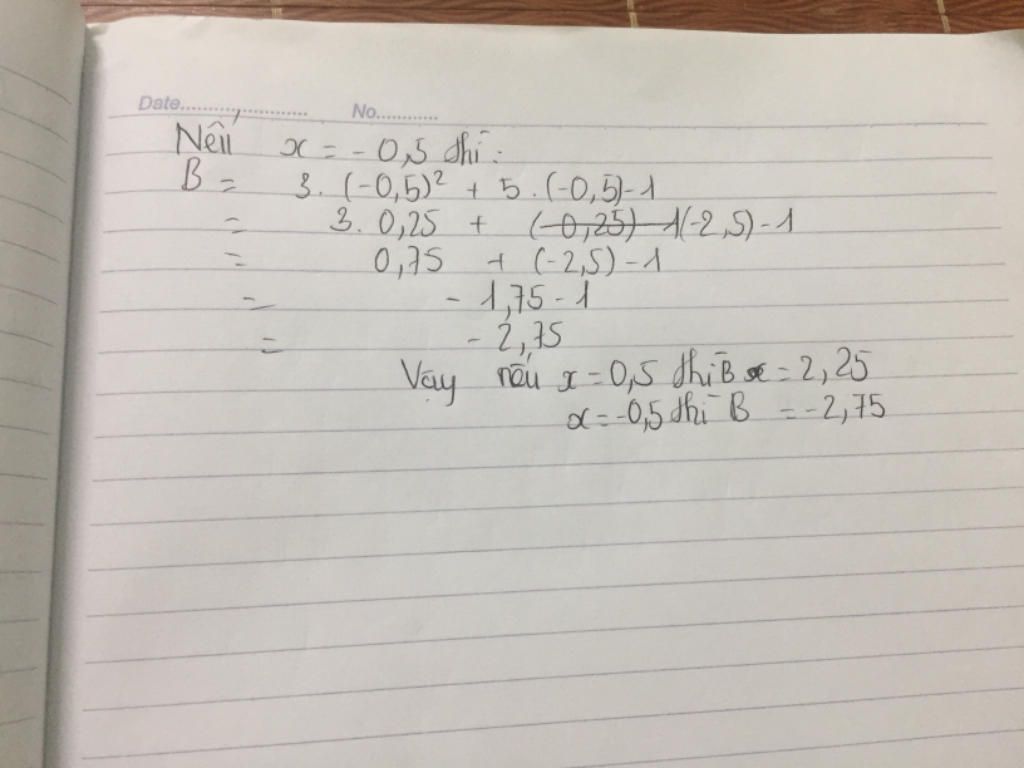 Date.................... No............
Nếu x = - 0,5 thì :
B = 3. (-0,5)² + 5 . (-0,5)-1
= 3. 0,25 + (-0,25) - 1(-2,5) - 1
= 0,75 + (-2,5) - 1
= - 1,75 - 1
= - 2,75
Vậy nếu x = 0,5 thì B x = 2,25
x = -0,5 thì B = - 2,75